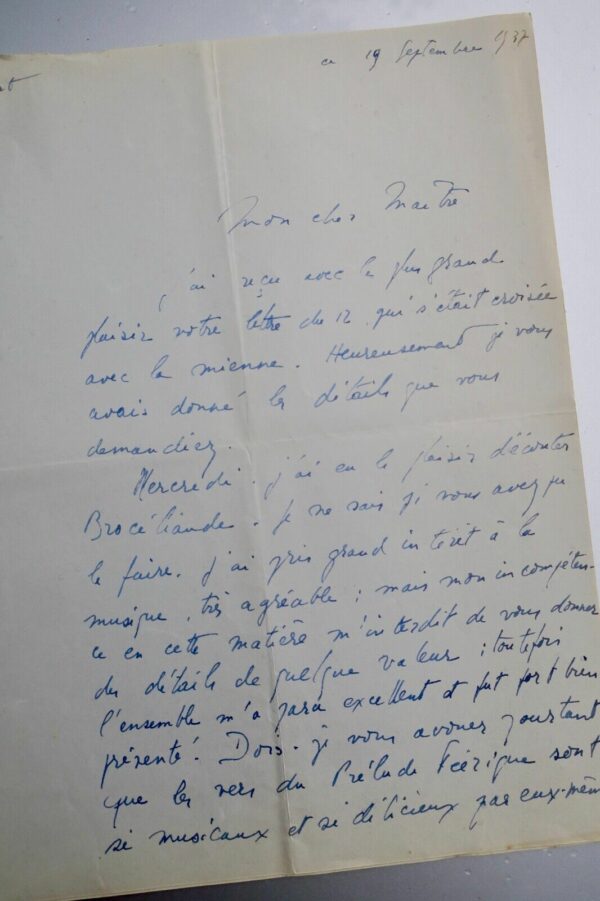 ce 19 Septembre 1937
Mon cher Maître
j'ai reçu avec le plus grand
plaisir votre lettre du 12 qui s'était croisée
avec la mienne. Heureusement je vous
avais donné les détails que vous
demandiez.
Mercredi. j'ai eu le plaisir d'écouter
Brocéliande. Je ne sais si vous avez pu
le faire. J'ai pris grand intérêt à la
musique, très agréable ; mais mon incompéten-
ce en cette matière m'interdit de vous donner
des détails de quelque valeur ; toutefois
l'ensemble m'a paru excellent et fut fort bien
présenté. Dois-je vous avouer pourtant
que les vers du Prélude Féérique sont
si musicaux et si délicieux par eux-mêm